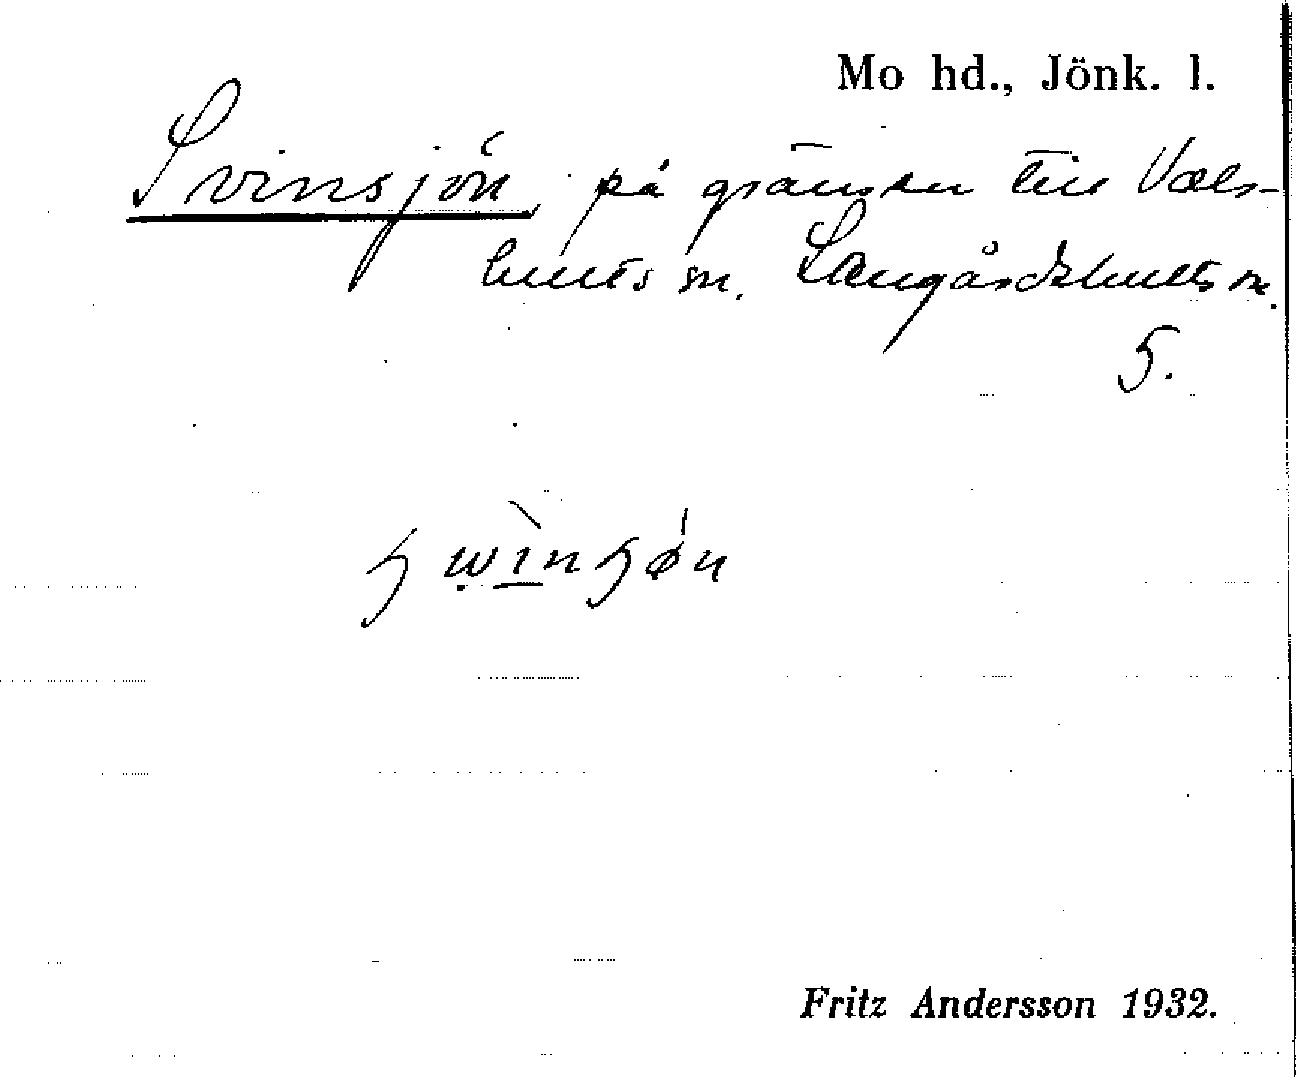 Mo hd., Jönk. l.
Svinsjön, på gränsen till Vals-
hults sn. Langårdshults sn.
5.
Fritz Andersson 1932.